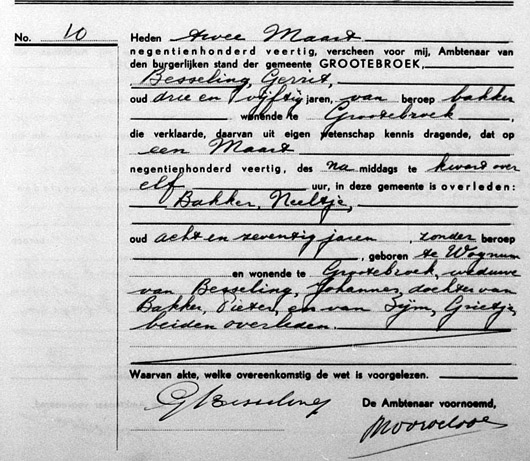 No. 10
Heden twee Maart
negentienhonderd veertig, verscheen voor mij, Ambtenaar van
den burgerlijken stand der gemeente GROOTEBROEK,
Besseling, Gerrit,
oud drie en vijftig jaren, van beroep bakker
wonende te Grootebroek,
die verklaarde, daarvan uit eigen wetenschap kennis dragende, dat op
een Maart
negentienhonderd veertig, des na middags te kwart over
elf uur, in deze gemeente is overleden:
Bakker, Neeltje,
oud acht en zeventig jaren, zonder beroep
, geboren te Wognum
en wonende te Grootebroek, weduwe
van Besseling, Johannes, dochter van
Bakker, Pieter, en van Sijm, Grietje,
beiden overleden.
Waarvan akte, welke overeenkomstig de wet is voorgelezen.
G Besseling
De Ambtenaar voornoemd,